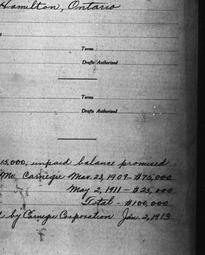 Hamilton, Ontario
Terms
Drafts Authorized
Terms
Drafts Authorized
15,000, unpaid balance promised
Mr. Carnegie Mar. 29, 1909 - $75,000
May 2, 1911 - $25,000
Total - $100,000
by Carnegie Corporation Jan. 2, 1913